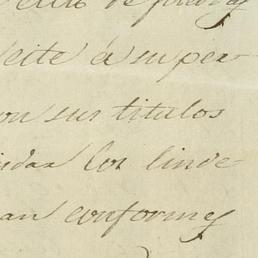 de piedras
leite á super
on sus titulos
idar los linde
an conformes